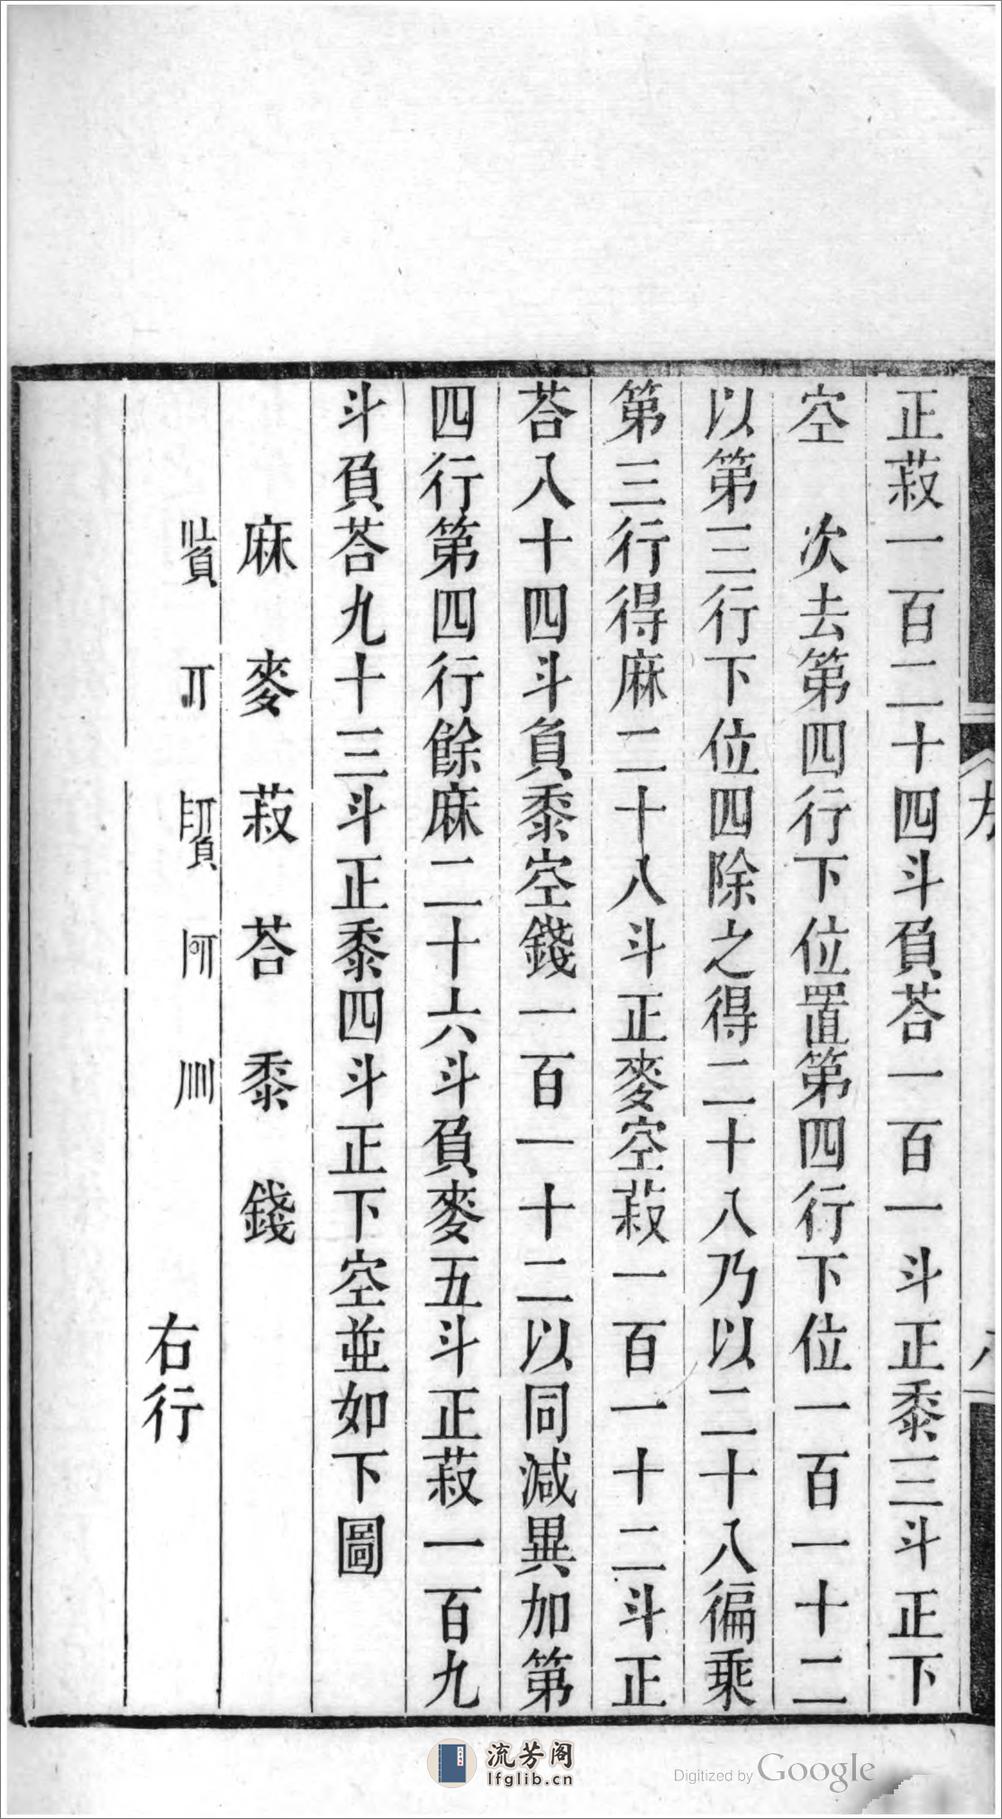 正菽一百二十四斗負荅一百一斗正黍三斗正下
空　次去第四行下位置第四行下位一百一十二
以第三行下位四除之得二十八乃以二十八徧乘
第三行得麻二十八斗正麥空菽一百一十二斗正
荅八十四斗負黍空錢一百一十二以同減異加第
四行第四行餘麻二十六斗負麥五斗正菽一百九
斗負荅九十三斗正黍四斗正下空並如下圖
麻　麥　菽　荅　黍　錢
右行
流芳阁
lfglib.cn
Digitized by Google